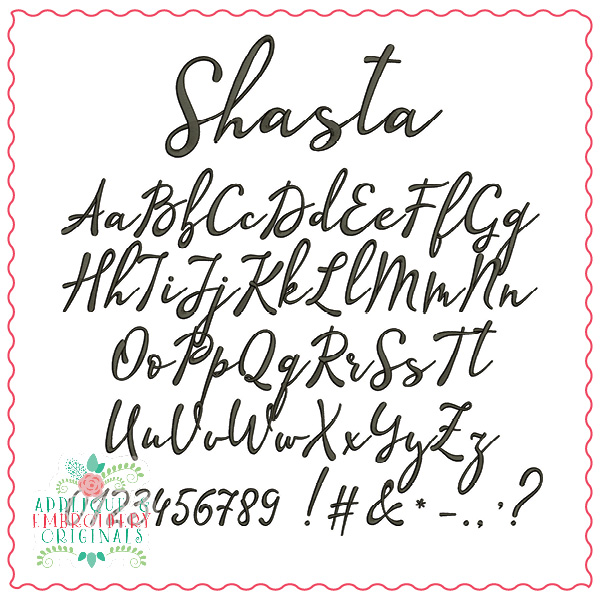 Shasta
AaBbCcDdEeFfGg
HhIiJjKkLlMmNn
OoPpQqRrSsTt
UuVvWwXxYyZz
0123456789 !#&*-.,'?
APPLIQUE &
EMBROIDERY
ORIGINALS